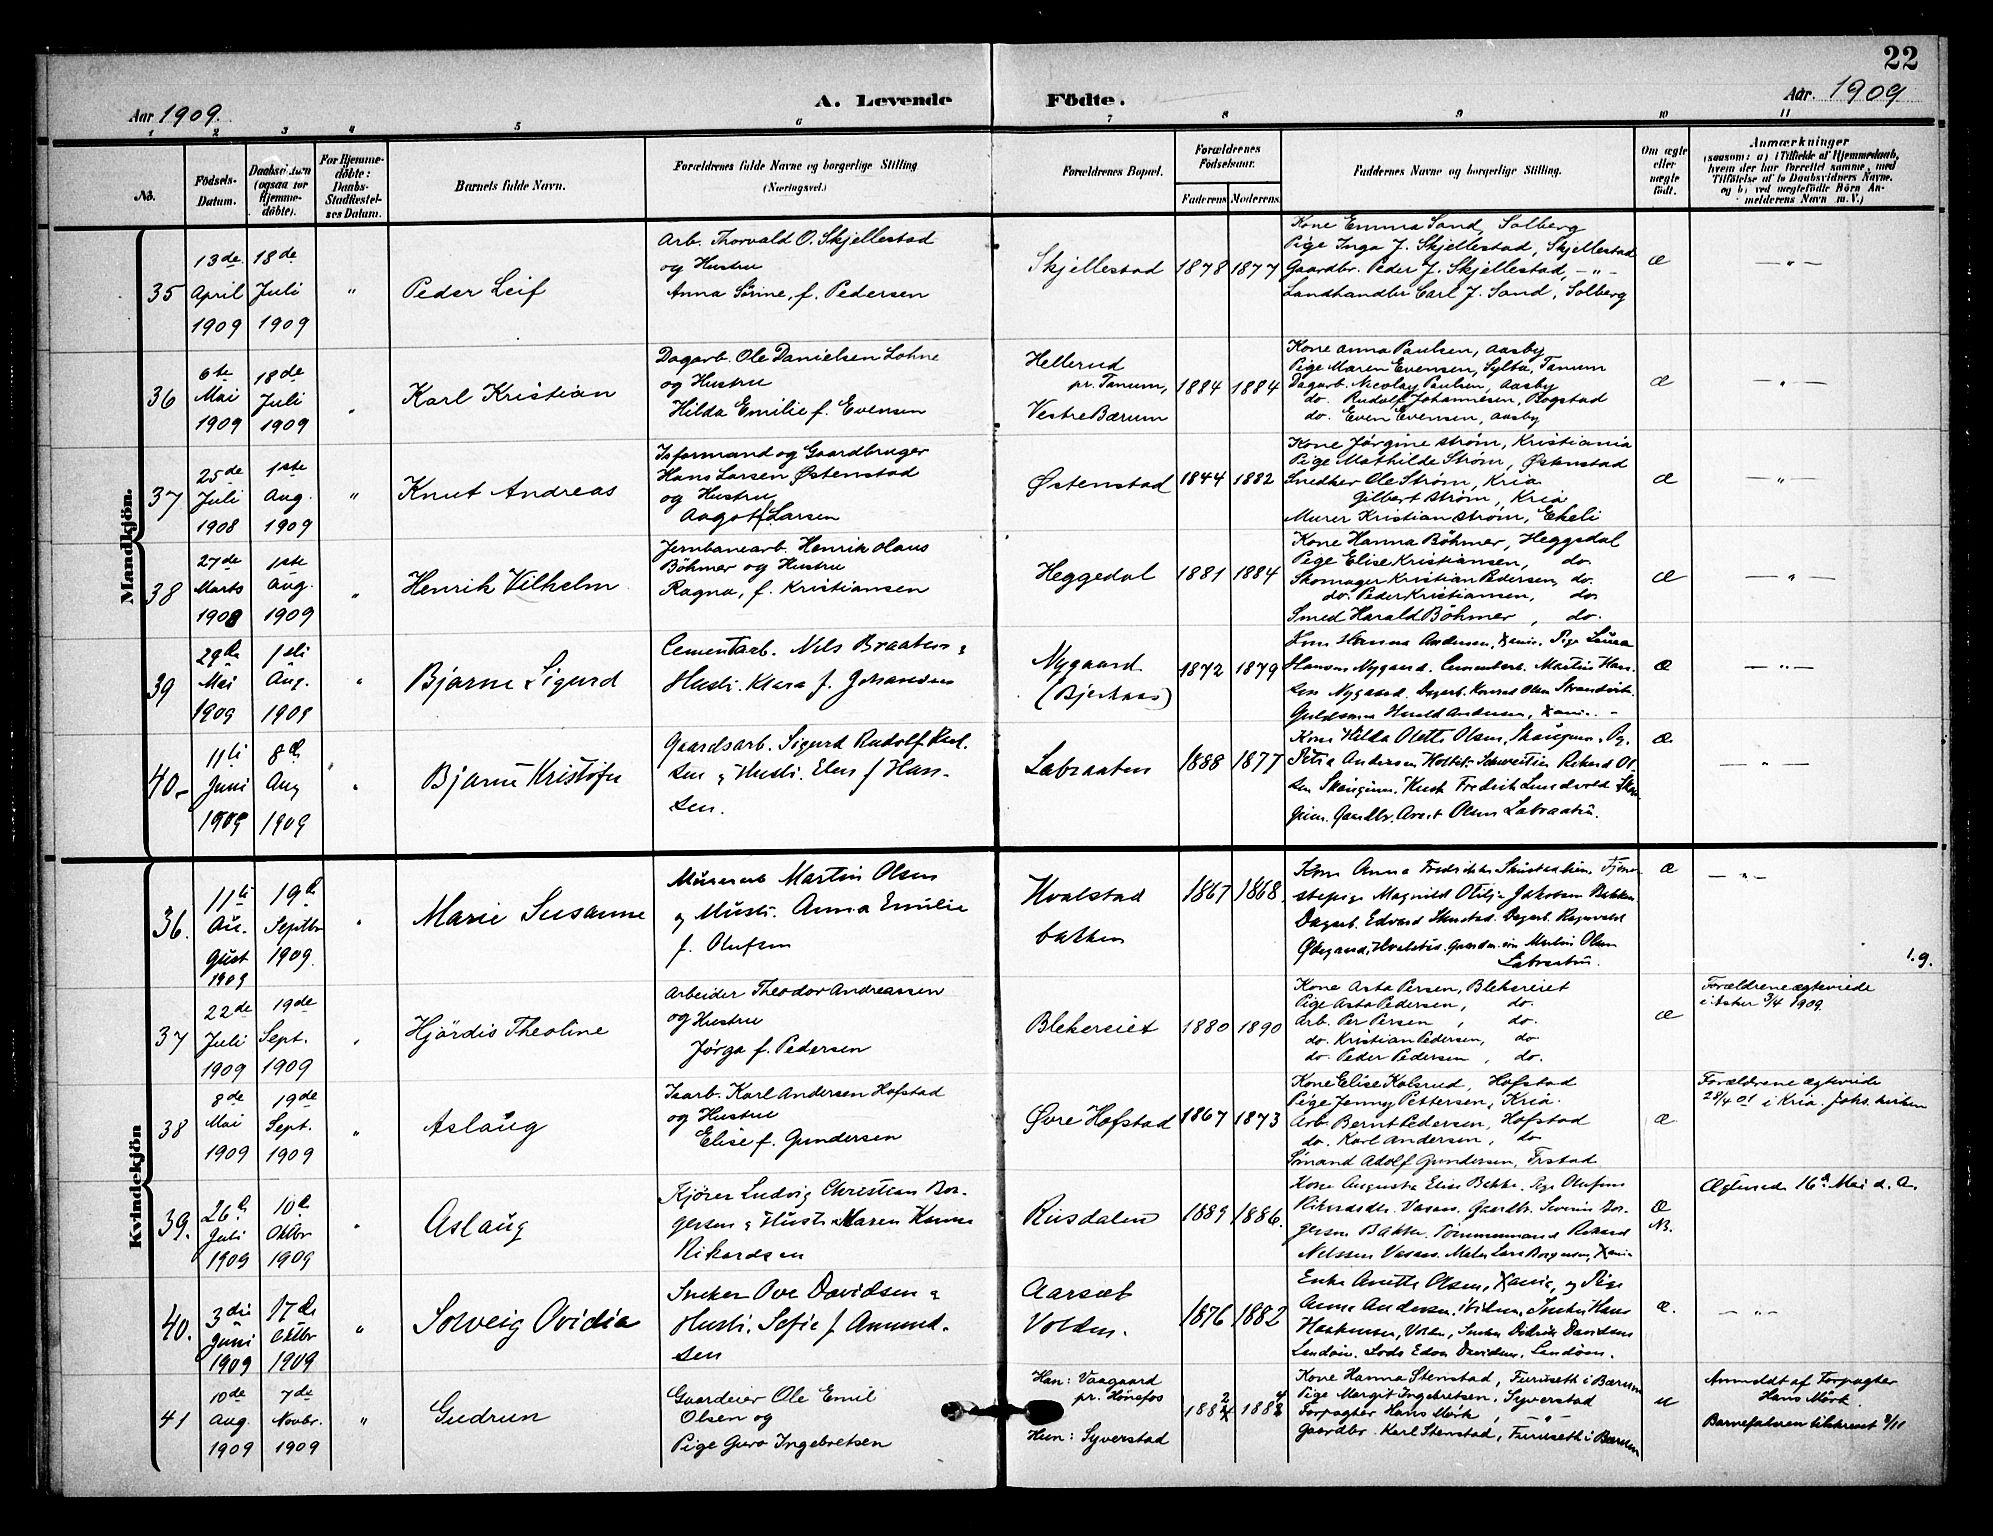 22
Aar 1909.
A. Levende
Födte.
Aar. 1909
1 2 3 4 5 6 7 8 9 10 11
No.
Födsels-
Datum.
Daabsdatum
(ogsaa for
Hjemme-
döbte).
For Hjemme-
döbte:
Daabs-
Stadfæstel-
ses Datum.
Barnets fulde Navn.
Forældrenes fulde Navne og borgerlige Stilling
(Næringsvei.)
Forældrenes Bopæl.
Forældrenes
Födselsaar.
Faderens
Moderens
Faddernes Navne og borgerlige Stilling.
Om ægte
eller
uægte
födt.
Anmærkninger
(saasom: a) i Tilfælde af Hjemmedaab,
hvem der har forrettet samme, med
Tilföielse af to Daabsvidners Navne,
og b) ved uægtefödte Börn An-
melderens Navn m. V.)
Mandkjön.
35
13de
April
1909
18de
Juli
1909
"
Peder Leif
Arb. Thorvald O. Skjellestad
og Hustru
Anna Sörine, f. Pedersen
Skjellestad
1878
1877
Kone Emma Sand, Solberg
Pige Inga J. Skjellestad, Skjellestad
Gaardbr. Peder J. Skjellestad, — " —
Landhandler Carl J. Sand, Solberg
æ
— " —
36
6te
Mai
1909
18de
Juli
1909
"
Karl Kristian
Dagarb. Ole Danielsen Lohne
og Hustru
Hilda Emilie f. Evensen
Hellerud
pr. Tanum,
Vestre Bærum
1884
1884
Kone Anna Paulsen, Aasby
Pige Maren Evensen, Sylta, Tanum
Dagarb. Nicolay Paulsen, Aasby
do. Rudolf Johannesen, Bogstad
do. Even Evensen, Aasby
æ
— " —
37
25de
Juli
1908
1ste
Aug.
1909
"
Knut Andreas
Isformand og Gaardbruger
Hans Larsen Østenstad
og Hustru
Aagot f. Larsen
Østenstad
1844
1882
Kone Jørgine Strøm, Kristiania
Pige Mathilde Strøm, Østenstad
Snedker Ole Strøm, Kria
Gilbert Strøm, Kria
Murer Kristian Strøm, Ekeli
æ
— " —
38
27de
Marts
1908
1ste
Aug.
1909
"
Henrik Vilhelm
Jernbanearb. Henrik Olaus
Böhmer og Hustru
Ragna, f. Kristiansen
Heggedal
1881
1884
Kone Hanna Böhmer, Heggedal
Pige Elise Kristiansen, do.
Skomager Kristian Pedersen, do.
do. Peder Kristiansen, do
Smed Harald Böhmer, do.
æ
— " —
39
29de
Mai
1909
1ste
Aug.
1909
"
Bjarne Sigurd
Cementarb. Nils Braaten &
Hustr. Klara f. Johansen
Nygaard
1872
1879
Hanna Andersen, Xania. Pige Laura
Hansen Nygaard. Cementarb. Martin Han-
sen Nygaard. Dagarb. Konrad Olsen
Guldsmed Harald Andersen, Xania. -
æ
— " —
40.
11te
Juni
1909
8de
Aug
1909
"
Bjarne Kristofer
Gaardsarb. Sigurd Rudolf Karl-
sen & Hustr. Elen f. Han-
sen.
Labraaten
1888
1877
Kone Hilda Olette Olsen, Skaugum. Pg.
Petra Andersen Rikard Ol-
sen Skaugum. Kusk Fredrik Lundvold Skau-
gum. Gaardbr. Olsen Labraaten.
æ
— " —
Kvindekjön
36.
11te
Au-
gust
1909
19de
Septbr
1909.
"
Marie Susanne
Murerarb Martin Olsen
& Hustr. Anna Emilie
f. Olufsen
Hvalstad
bakken
1867
1868.
Kone Anna Fredrikke Tjene-
stepige Magnild Otilje Jakobsen Bakken
Dagarb. Edvard Dagarb. Ragnvald
Hvalstad. Martin Olsen
Labraaten.
æ
— " —
1.9.
37
22de
Juli
1909
19de
Sept.
1909
"
Hjördis Theoline
Arbeider Theodor Andreassen
og Hustru
Jörga f. Pedersen
Blekerseiet
1880
1890
Kone Asta Persen, Blekerseiet
Pige Asta Pedersen, do.
Arb. Per Persen, do.
do. Kristian Pedersen, do
do. Peder Pedersen, do.
æ
Forældrene ægteviede
i Asker 3/4 1909.
38
8de
Mai
1909
19de
Sept.
1909
"
Aslaug
Isarb. Karl Andersen Hofstad
og Hustru
Elise f. Gundersen
Øvre Hofstad
1867
1873
Kone Elise Kolsrud, Hofstad
Pige Jenny Pettersen, Kria.
Arb Bernt Pedersen, Hofstad
do. Karl Andersen, do
Sömand Adolf Gundersen,
æ
Forældrene ægteviede
28/4 01 i Kria. Johs. kirken
39.
26de
Juli
1909
10de
Oktbr
1909
"
Aslaug
Kjörer Ludvig Christian Bor-
gersen & Hustr Maren Hanna
Rikardsen
Risdalen
1889
1886.
Kone Augusta Elise Bakke. Pige
Rikardsen Vasaas. Gaardbr. Severin Bor-
gersen Bakke. Tömmermand Rikard
Nelssen Vasaas. Maler Lars Borgersen, Xania
Æ
NB.
Ægteviede 16de Mai d. A.
40.
3die
Juni
1909
17de
Oktbr
1909
"
Solveig Ovidia
Snekker Ove Davidsen &
Hustr. Sofie f. Amund-
sen
Aarsæt
Volden.
1876
1882
Enke Anette Olsen, Xania, og Pige
Anna Andersen, Volden, Snekker Hans
Haakensen, Volden, Snekker Didrik Davidsen
Landöen. Lods Edon Davidsen, Landöen.
æ.
— " —
41
10de
Aug.
1909
7de
Novbr.
1909
"
Gudrun
Gaardeier Ole Emil
Olsen og
Pige Guro Ingebretsen
Han: Vaagaard
pr. Hönefos
Hun: Syverstad
1882
1884
Kone Hanna Stenstad, Furuseth i Bærum
Pige Margit Ingebretsen, Syverstad
Forpagter Hans Mörk, — " —
Gaardbr. Karl Stenstad, Furuseth i Bærum
u
Anmeldt af Forpagter
Hans Mörk.
Barnefaderen tilskrevet 8/11